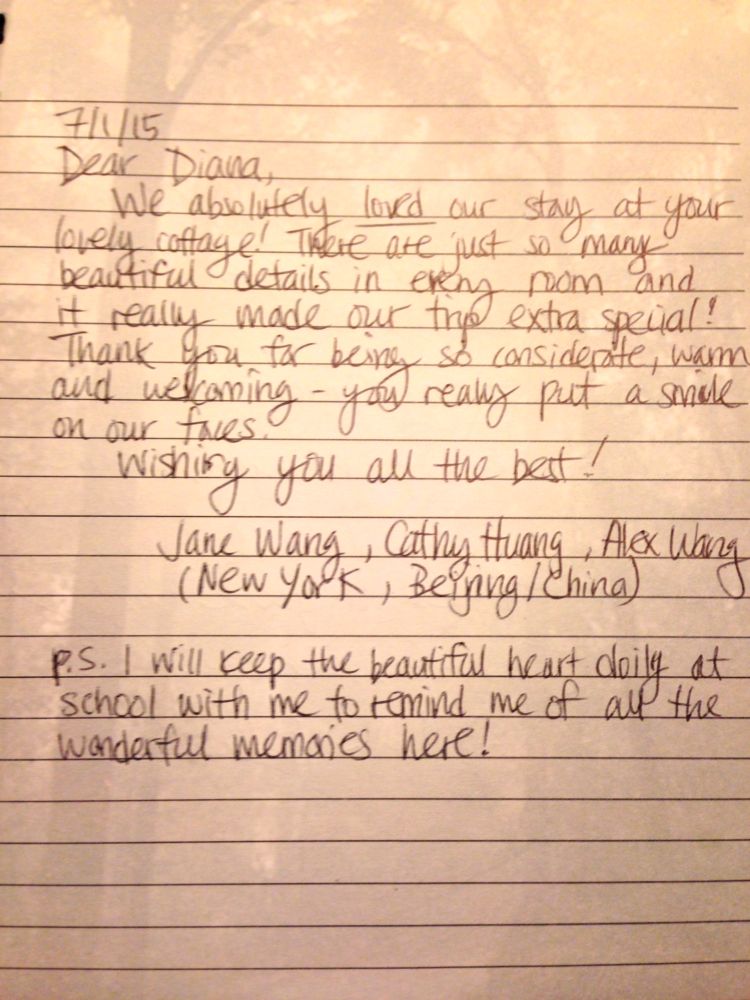 7/1/15
Dear Diana,
We absolutely loved our stay at your
lovely cottage! There are just so many
beautiful details in every room and
it really made our trip extra special!
Thank you for being so considerate, warm
and welcoming - you really put a smile
on our faces.
Wishing you all the best!
Jane Wang, Cathy Huang, Alex Wang
(New York, Beijing/China)
P.S. I will keep the beautiful heart doily at
school with me to remind me of all the
wonderful memories here!